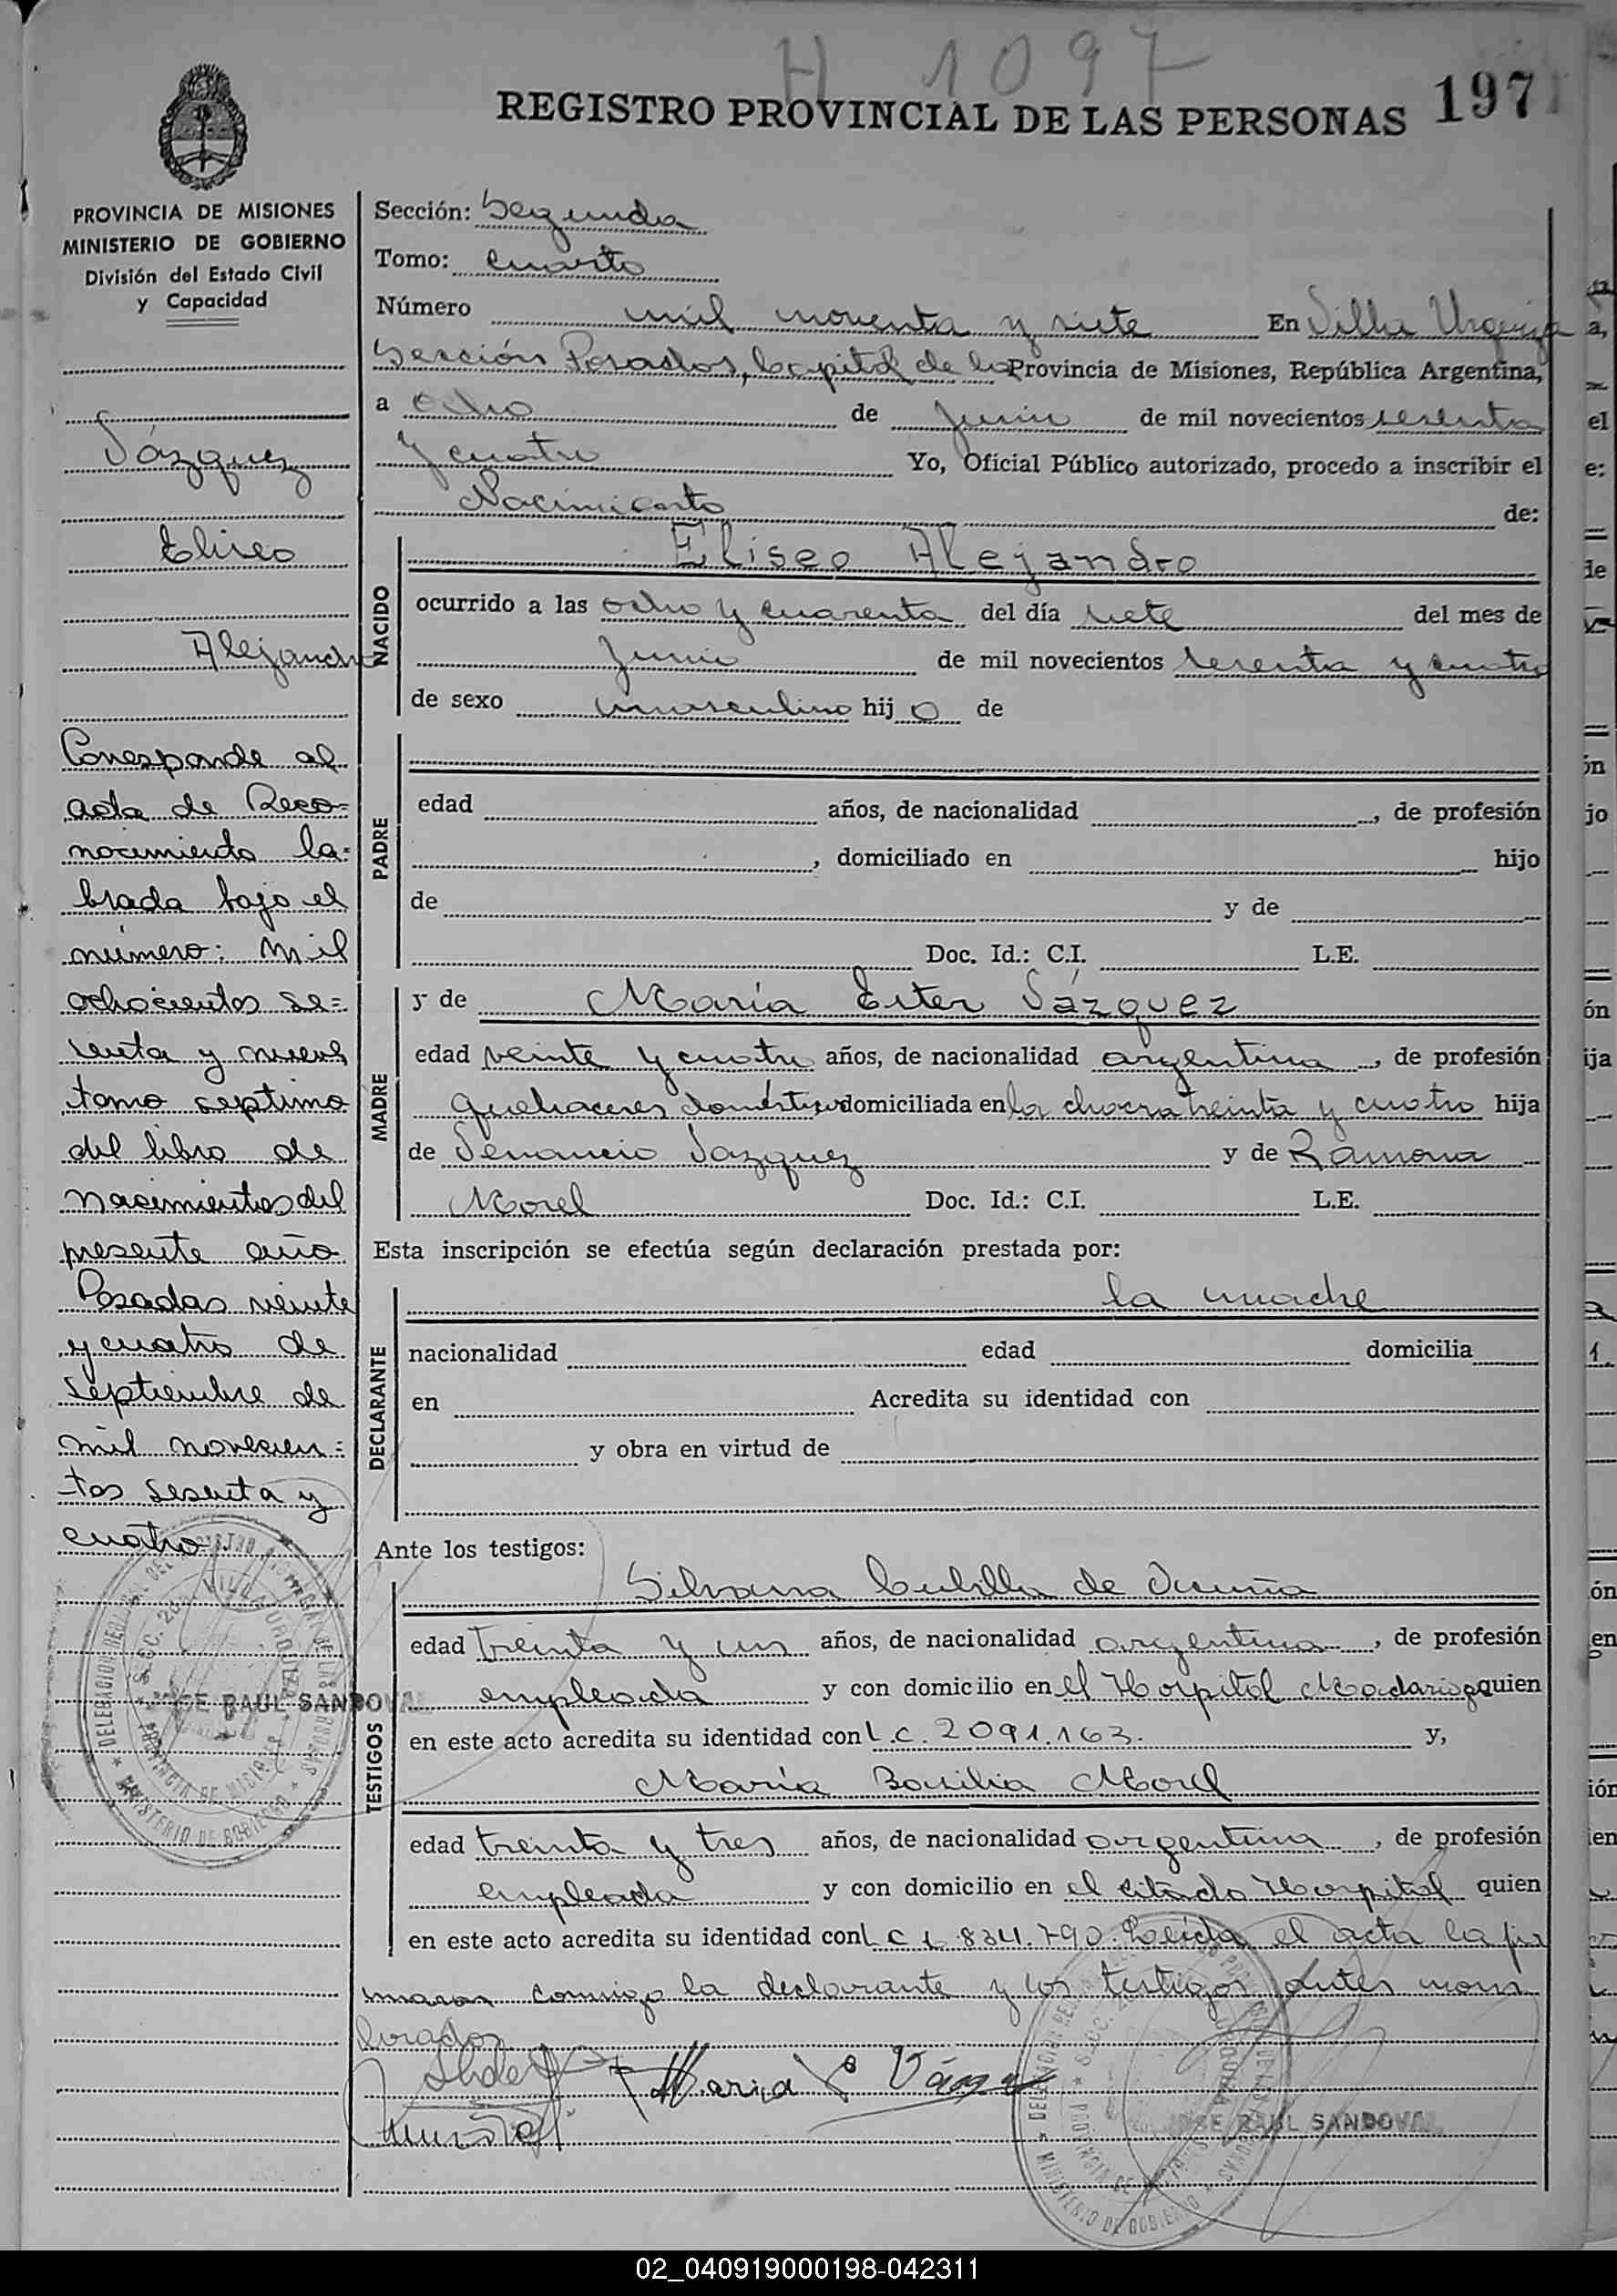 H 1097
REGISTRO PROVINCIAL DE LAS PERSONAS 197
PROVINCIA DE MISIONES
MINISTERIO DE GOBIERNO
División del Estado Civil
y Capacidad
Vázquez
Eliseo
Alejandro
Corresponde al
acta de Reco=
nocimiento la=
brada bajo el
número: mil
ochocientos se=
senta y nueve
tomo septimo
del libro de
Nacimientos del
presente año
Posadas veinte
y cuatro de
septiembre de
mil novecien=
tos sesenta y
cuatro.
JOSE RAUL SANDOVAL
Sección: Segunda
Tomo: Cuarto
Número mil noventa y siete En Villa Urquiza
Sección Posadas, Capital de la Provincia de Misiones, República Argentina,
a ocho de Junio de mil novecientos sesenta
y cuatro Yo, Oficial Público autorizado, procedo a inscribir el
Nacimiento de:
NACIDO
Eliseo Alejandro
ocurrido a las ocho y cuarenta del día siete del mes de
Junio de mil novecientos sesenta y cuatro
de sexo masculino hijo de
PADRE
edad años, de nacionalidad , de profesión
, domiciliado en hijo
de y de
Doc. Id.: C.I. L.E.
MADRE
y de María Ester Vázquez
edad veinte y cuatro años, de nacionalidad argentina, de profesión
Quehaceres domésticos domiciliada en la chacra treinta y cuatro hija
de Venancio Vazquez y de Ramona
Morel Doc. Id.: C.I. L.E.
Esta inscripción se efectúa según declaración prestada por:
DECLARANTE
la madre
nacionalidad edad domicilia
en Acredita su identidad con
y obra en virtud de
Ante los testigos:
TESTIGOS
Silvana Cubilla de Acuña
edad treinta y un años, de nacionalidad argentina, de profesión
empleada y con domicilio en el Hospital Madariaga quien
en este acto acredita su identidad con L.C. 2091.163. y,
María Basilia Morel
edad treinta y tres años, de nacionalidad argentina, de profesión
empleada y con domicilio en el citado Hospital quien
en este acto acredita su identidad con L C 6.834.790. Leída el acta la fir
maron conmigo la declarante y los testigos antes nom
brados
Maria E Vázquez
JOSE RAUL SANDOVAL
02_040919000198-042311